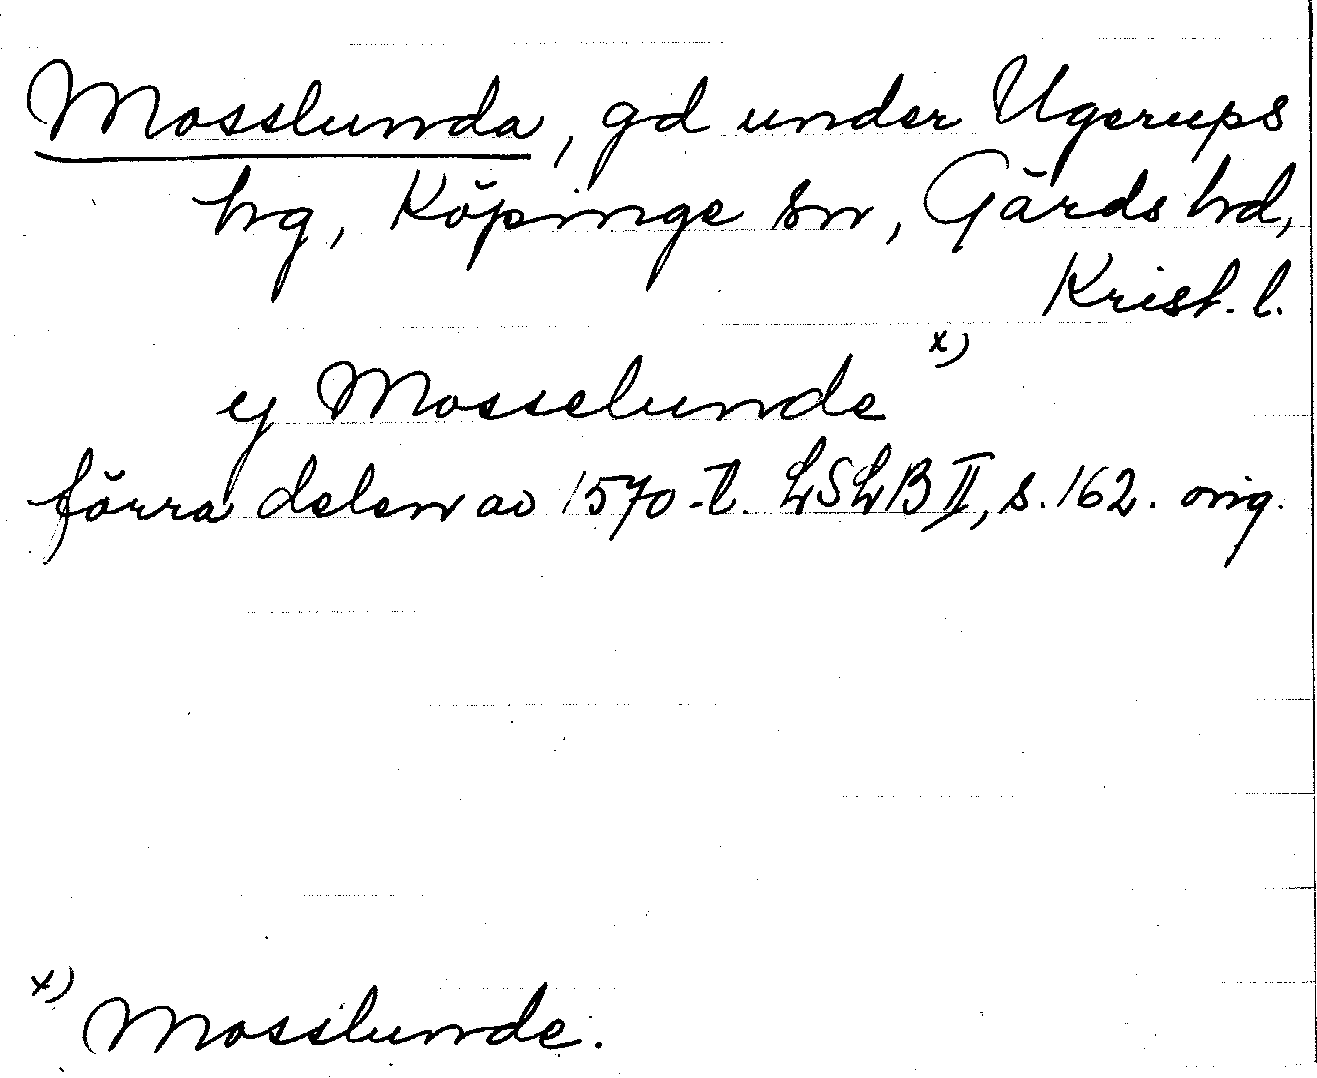 Mosslunda, gd under Ugerups
hg, Köpinge sn, Gärds hd,
Krist. l.
ej Mosselunde x)
förra delen av 1570-t. LSLB II, s. 162. orig.
x) Mosslunde.